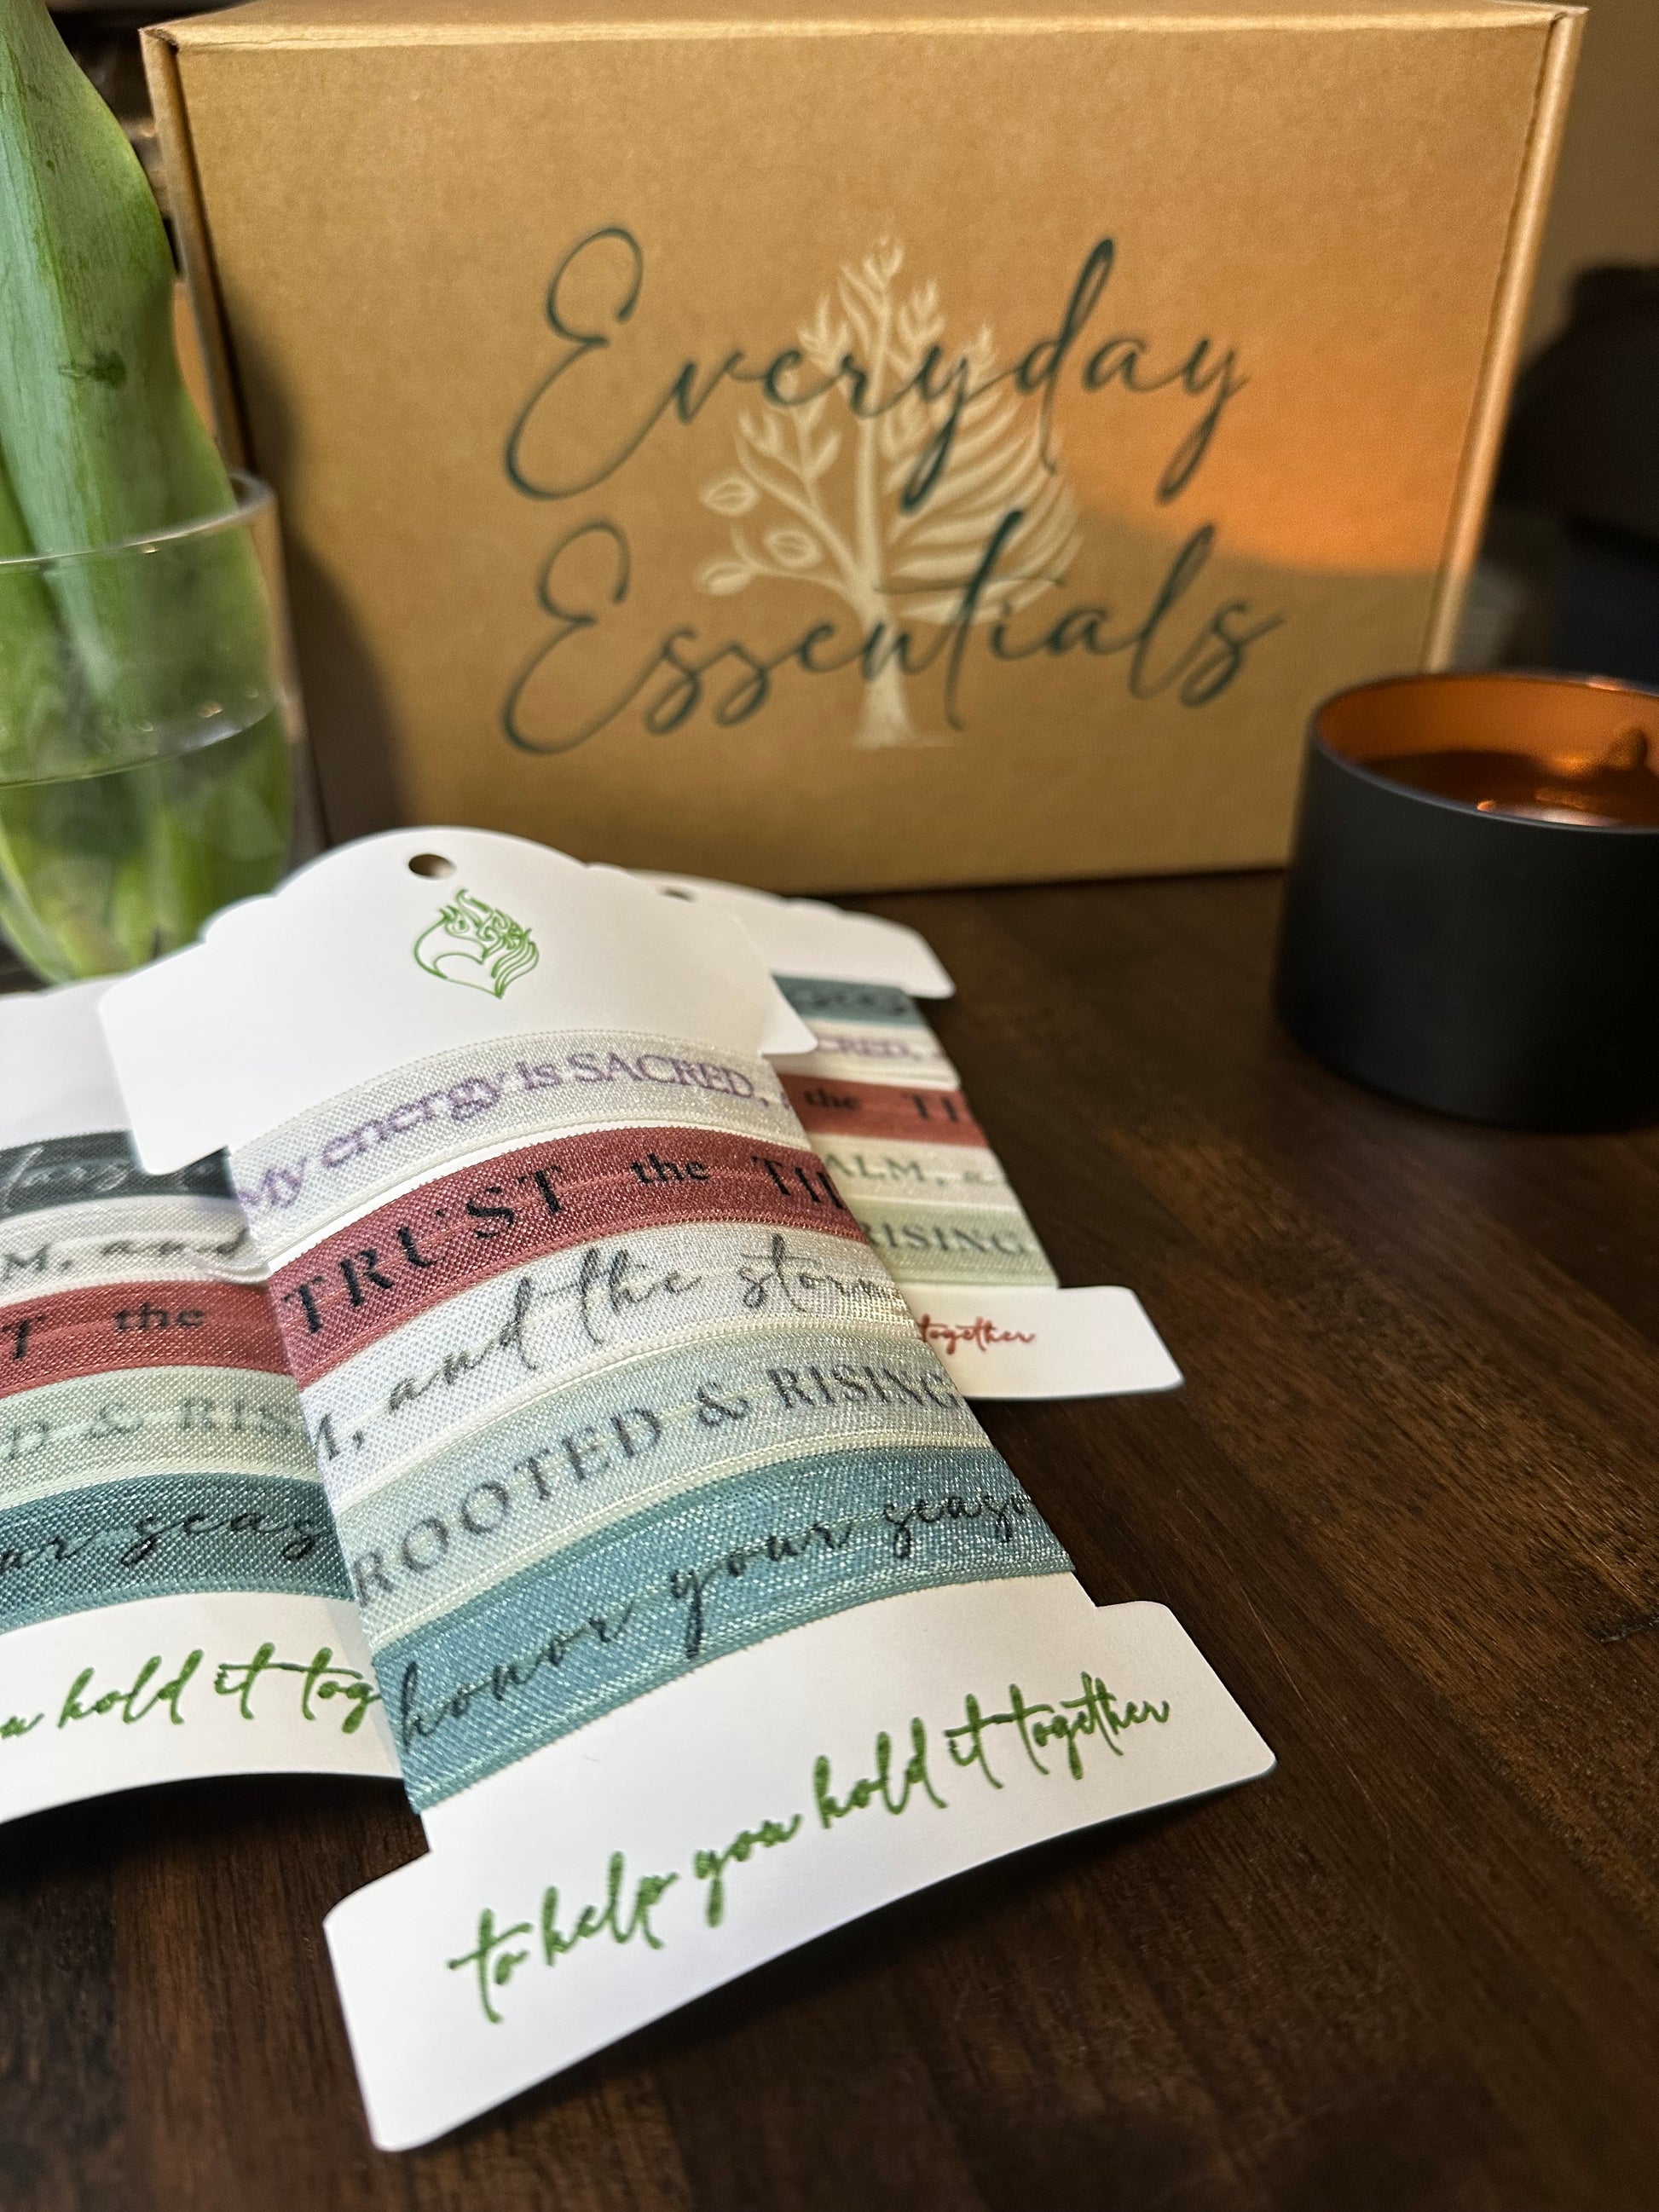 Everyday
Essentials
My energy is SACRED,
TRUST the TI
M, and the storm
ROOTED & RISING
honor your seaso
to help you hold it together
M, and
T the
D & RIS
ur seas
u hold it tog
CRED,
the TI
ALM, a
RISING
together